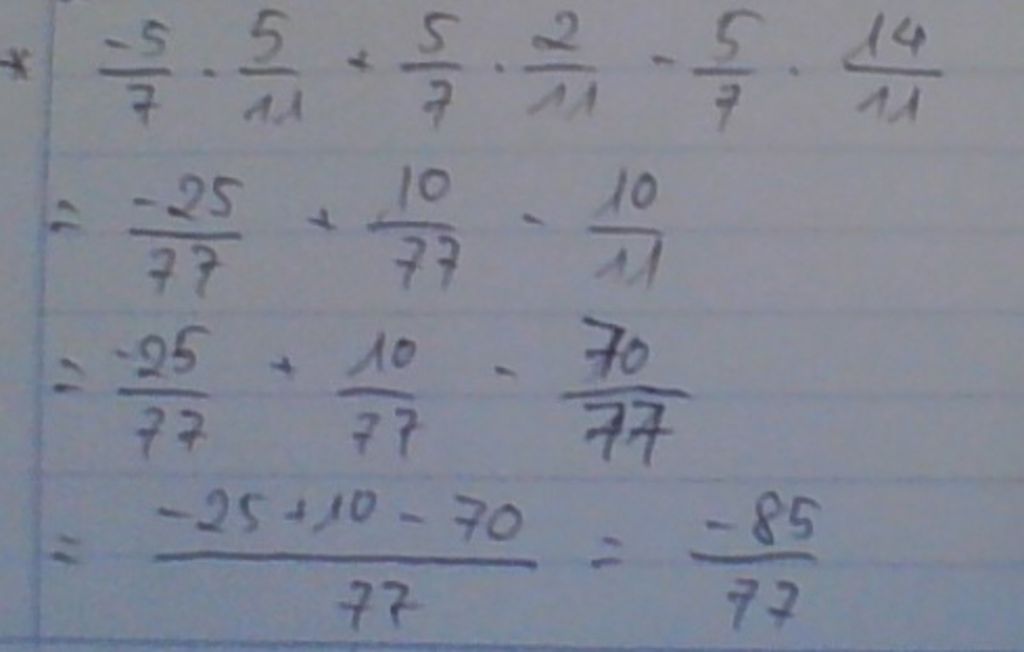 * -5/7 . 5/11 + 5/7 . 2/11 - 5/7 . 14/11
= -25/77 + 10/77 - 10/11
= -25/77 + 10/77 - 70/77
= -25+10-70/77 = -85/77